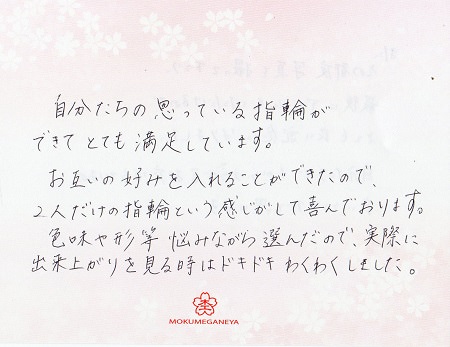 自分たちの思っている指輪が
できてとても満足しています。
お互いの好みを入れることができたので、
2人だけの指輪という感じがして喜んでおります。
色味や形等悩みながら選んだので、実際に
出来上がりを見る時はドキドキわくわくしました。
MOKUMEGANEYA